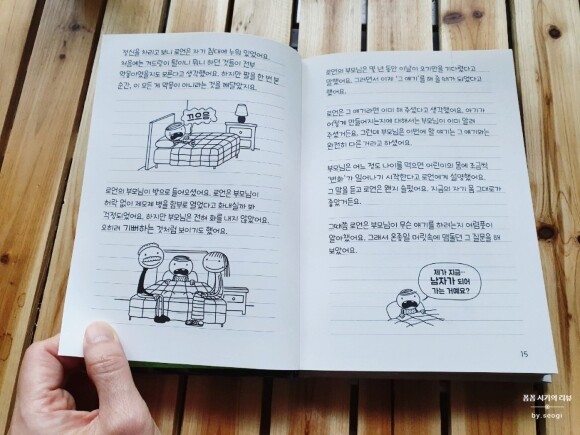 정신을 차리고 보니 로언은 자기 침대에 누워 있었어요.
처음에는 겨드랑이 털이니 뭐니 하던 것들이 전부
악몽이었을지도 모른다고 생각했어요. 하지만 팔을 한 번 본
순간, 이 모든 게 악몽이 아니라는 것을 깨달았지요.
끄으응
로언의 부모님이 방으로 들어오셨어요. 로언은 부모님이
허락 없이 제모제 병을 함부로 열었다고 화내실까 봐
걱정되었어요. 하지만 부모님은 전혀 화를 내지 않았어요.
오히려 기뻐하는 것처럼 보이기도 했어요.
로언의 부모님은 몇 년 동안 이날이 오기만을 기다렸다고
말했어요. 그러면서 이제 '그 얘기'를 해 줄 때가 되었다고
했어요.
로언은 그 얘기라면 이미 해 주셨다고 생각했어요. 아기가
어떻게 만들어지는지에 대해서는 부모님이 이미 말해
주셨거든요. 그런데 부모님은 이번에 할 얘기는 그 얘기와는
완전히 다른 거라고 하셨어요.
부모님은 어느 정도 나이를 먹으면 어린이의 몸에 조금씩
'변화'가 일어나기 시작한다고 로언에게 설명했어요.
그 말을 듣고 로언은 왠지 슬펐어요. 지금의 자기 몸 그대로가
좋았거든요.
그때쯤 로언은 부모님이 무슨 얘기를 하려는지 어렴풋이
알아챘어요. 그래서 온종일 머릿속에 맴돌던 그 질문을 해
보았어요.
제가 지금…
남자가 되어
가는 거예요?
75
봄봄 시기의 리뷰
by.seogi